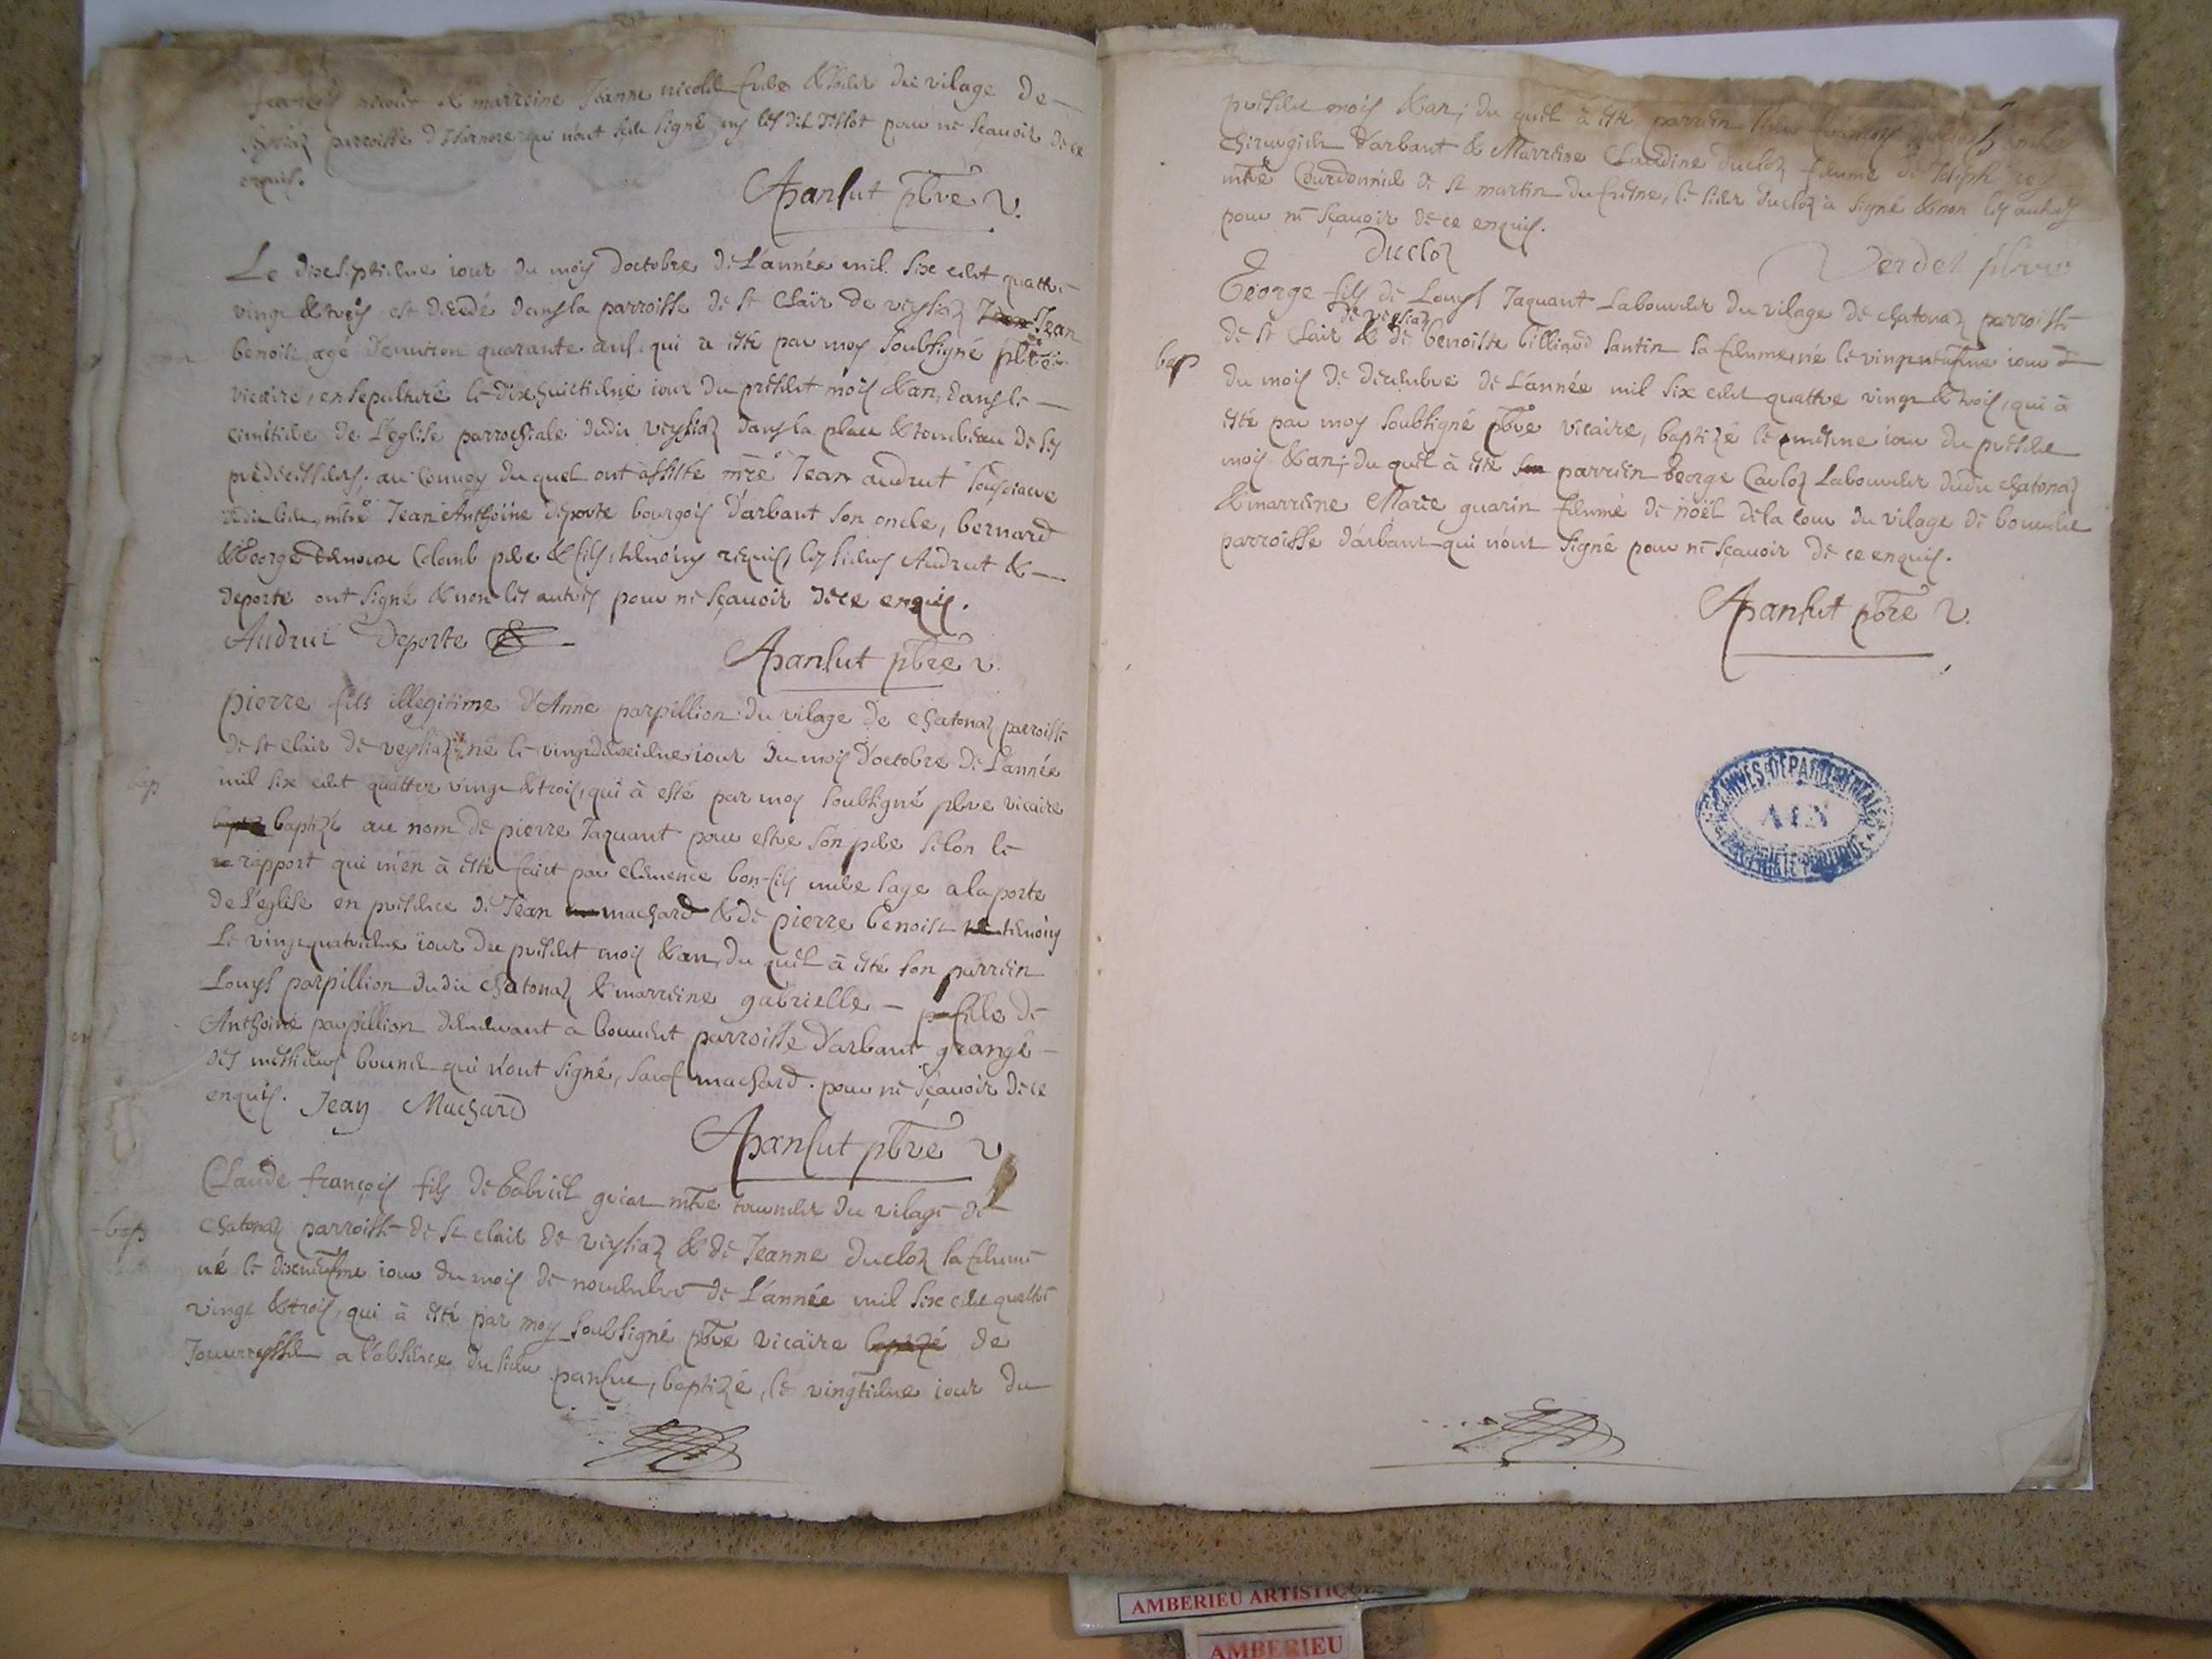 & marreine Jeanne nicolle du vilage de
parroisse qui n'ont signé pour ne sçauoir de ce
enquis.
Apansut pbre v.
Le dixseptieme iour du mois doctobre de L'année mil six cent quattre
vingt & trois est decedé dans la parroisse de st Clair de veysiaz Jean
benoist agé denuiron quarante ans, qui a esté par moy soubsigné pbre
vicaire, ensepulturé le dixhuictieme iour du présent mois & an, dans le
cimitiere de L'eglise parrochiale dudit veysiaz dans la place & tombeau de ses
predecesseurs; au conuoy du quel ont assisté mre Jean audrut sousdiacre
dudit lieu, mtre Jean Anthoine deporte bourgois d'arbant son oncle, bernard
& George Colomb pere & fils, temoins requis, les sieurs Audrut &
deporte ont signé & non les autres pour ne sçauoir de ce enquis.
Audrut Deporte
Apansut pbre v.
pierre fils illegitime d'Anne parpillion du vilage de chatonaz parroisse
de st clair de veysiaz né le vingtdeuxieme iour du mois d'octobre de L'année
mil six cent quattre vingt & trois, qui à esté par moy soubsigné pbre vicaire
baptizé au nom de pierre Jaquant pour estre son pere selon le
rapport qui m'en à esté faict par clemence bon-fils mere sage a la porte
de L'eglise en présence de Jean machard & de pierre benoist temoins
Le vingtquatrieme iour du présent mois & an, du quel à esté son parrein
Louys parpillion dudit chatonaz & marreine gabrielle - fille de
Anthoine parpillion demeurant a bouuent parroisse d'arbant grangé
des messieurs qui n'ont signé, sauf machard. pour ne sçauoir de ce
enquis. Jean Machard
Apansut pbre v
bap
Claude françois fils de Gabriel guiat mtre tournier du vilage de
chatonaz parroisse de st clair de veysiaz & de Jeanne ducloz sa femme
né le dixneufme iour du mois de nouembre de L'année mil six cent quattre
vingt & trois, qui à esté par moy soubsigné pbre vicaire de
a l'absence du sieur pansut, baptizé, le vingtieme iour du
présent mois & an; du quel à esté parrein sieur
chirurgien d'arbant & Marreine Claudine ducloz femme de Joseph
mtre Courdonnier de st martin du fresne, le sieur ducloz à signé & non les autres
pour ne sçauoir de ce enquis.
Ducloz
Verdet pbre
George fils de Louys Jaquant Laboureur du vilage de chatonaz parroisse
de veysiaz
de st Clair & de benoiste billiaud santin sa femme, né le vingtneufme iour
bap
du mois de decembre de L'année mil six cent quattre vingt & trois, qui à
esté par moy soubsigné pbre vicaire, baptizé le mesme iour du présent
mois & an; du quel à esté parrein George Cauloz Laboureur dudit chatonaz
& marreine Marie guarin femme de noël dela cour du vilage de bouuent
parroisse d'arbant qui n'ont signé pour ne sçauoir de ce enquis.
Apansut pbre v.
ARCHIVES DÉPARTEMENTALES
AIN
AMBERIEU ARTISTIQUE
AMBERIEU